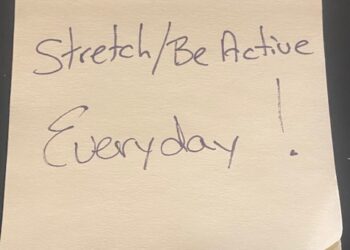 Stretch/Be Active
Everyday!